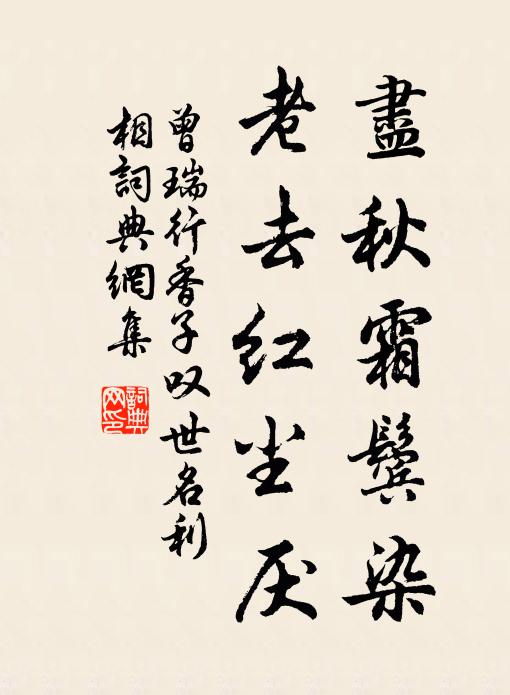 盡秋霜鬓染
老去红尘厌
曾瑞行香子叹世名利
相詞典網集
詞典网印